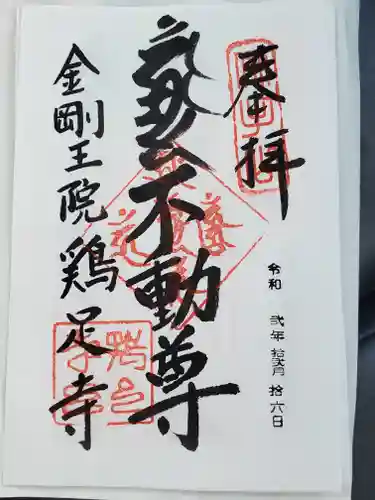 奉拝
令和 弐年 拾弐月 拾六日
不動尊
金剛王院 鶏足寺